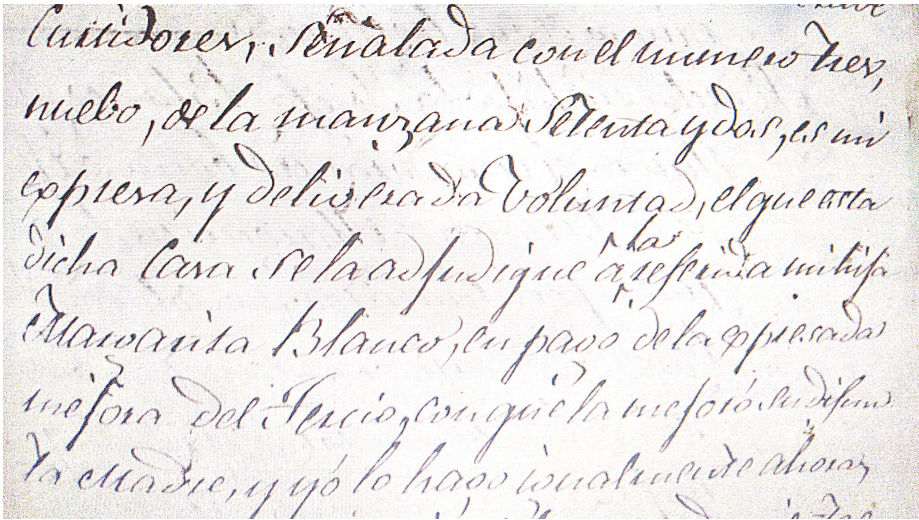 Curtidores, Señalada con el numero tres,
nuebo, de la manzana Setenta y dos, es mi
expresa, y deliverada Voluntad, el que esta
dicha Casa se la adjudique á la referida mi hija
Margarita Blanco, en pago de la expresada
mejora del Tercio, con que la mejoró su difun
ta Madre, y yó lo hago igualmente ahora,